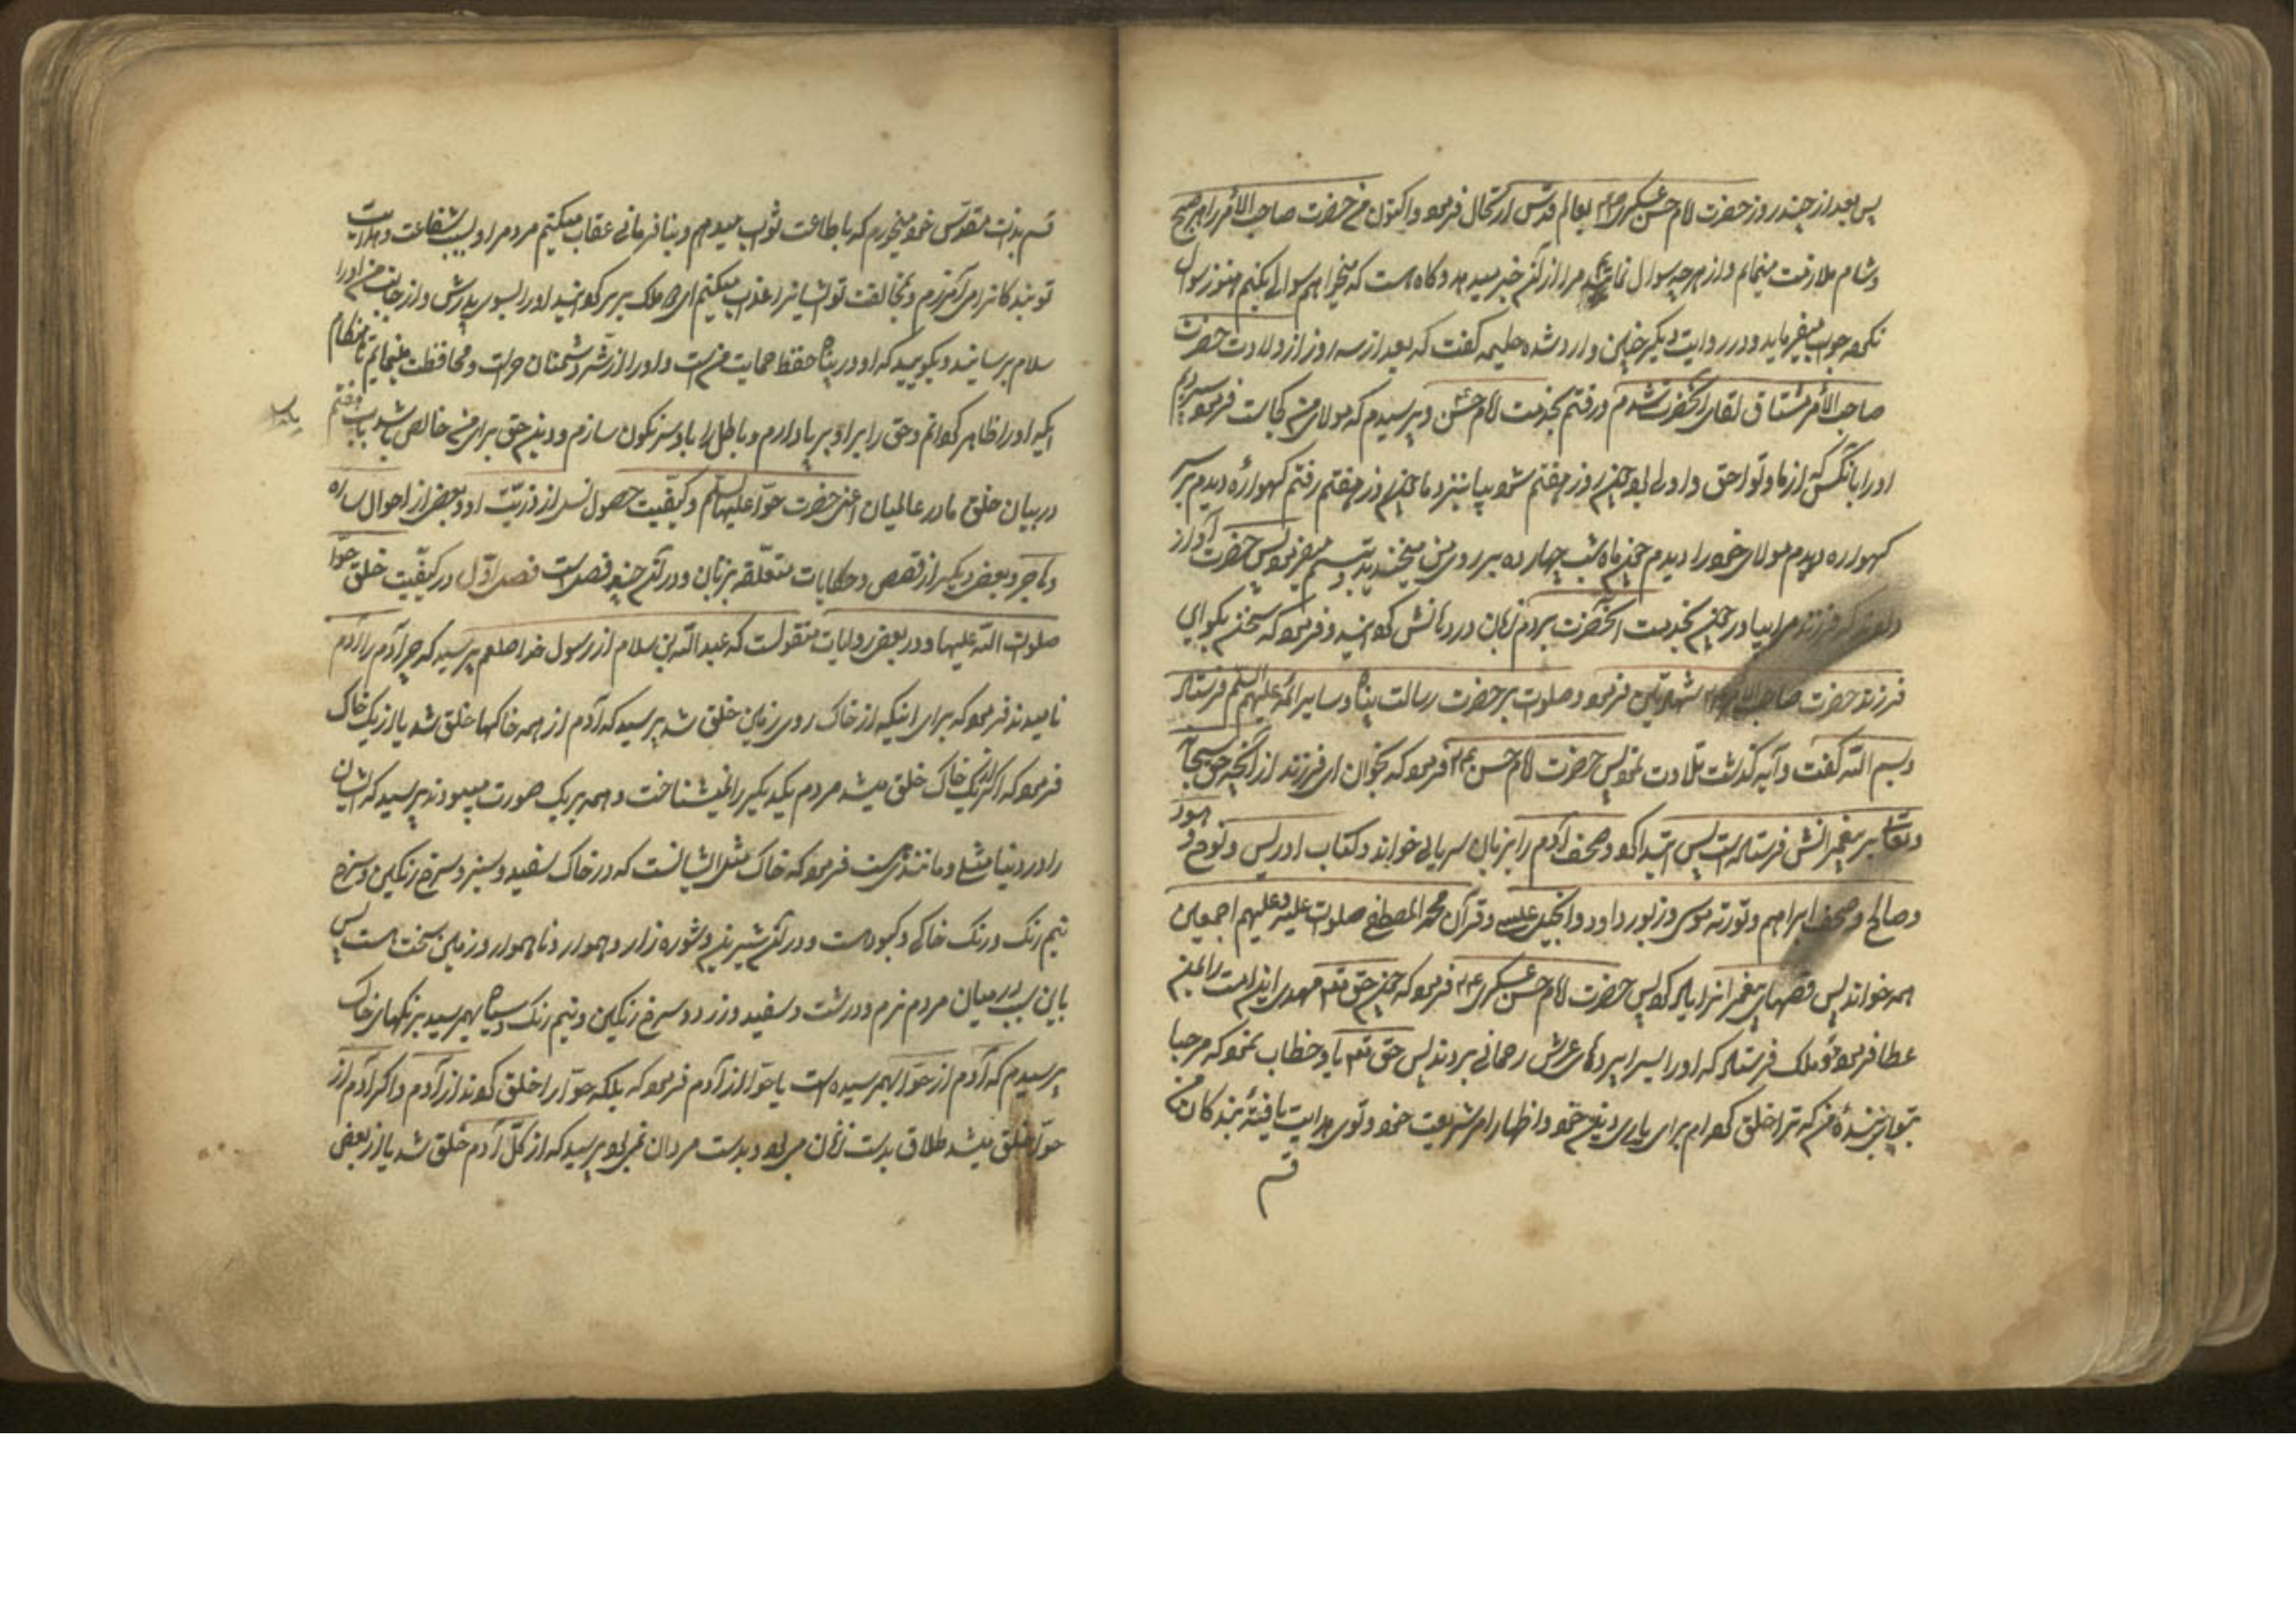 پس بعد از چند روز حضرت امام حسن عسکری ع بعالم قدس ارتحال فرمود و اکنون من حضرت صاحب الامر را هر صبح
و شام ملازمت مینمایم و از هر چه سوال نمایم مرا از آن خبر میدهد و گاه هست که میخواهم سوالی بکنم هنوز سوال
نکرده جواب میفرماید و در روایت دیگر چنین وارد شده حلیمه گفت که بعد از سه روز از ولادت حضرت
صاحب الامر مشتاق لقای آنحضرت شدم و رفتم بخدمت امام حسن ع و پرسیدم که مولای من کجاست فرمود سپردم
او را بآنکس که از ما و تو احق و اولی بود چون روز هفتم شود بیا بنزد ما چون روز هفتم رفتم گهواره دیدم بر سر
گهواره دویدم مولای خود را دیدم چون ماه شب چهارده بر روی من میخندید و تبسم میفرمود پس حضرت آواز
دادند که فرزند مرا بیاور چون بخدمت آنحضرت بردم زبان در دهانش گردانید و فرمود که سخن بگو ای
فرزند حضرت صاحب الامر ع شهادتین فرمود و صلوات بر حضرت رسالت پناه و سایر ائمه علیهم السلم فرستاد
و بسم الله گفت و آیه گذشته تلاوت نمود پس حضرت امام حسن ع فرمود که بخوان ای فرزند از آنچه حق سبحانه
و تعالی بر پیغمبرانش فرستاده است پس ابتدا کرد و صحف آدم را بزبان سریانی خواند و کتاب ادریس و نوح و هود
و صالح و صحف ابراهیم و تورته موسی و زبور داود و انجیل عیسی و قرآن محمد المصطفی صلوات علیه و علیهم اجمعین
همه خواند پس قصهای پیغمبران را یاد کرد پس حضرت امام حسن عسکری ع فرمود که چون حق تعه مهدی این امت را بمن
عطا فرمود دو ملک فرستاد که او را بسراپردهای عرش رحمانی بردند پس حق تعه باو خطاب نمود که مرحبا
بتو ای بنده من که ترا خلق کرده ام برای یاری دین خود و اظهار امر شریعت خود و توی هدایت یافته بندگان من
قسم
قسم بذات مقدس خود میخورم که باطاعت تو ثواب میدهم و بنافرمانی تو عقاب میکنم مردم را و بسبب شفاعت و هدایت
تو بندگان را می آمرزم و بمخالفت تو ایشانرا عذاب میکنم ای دو ملک برگردانید او را بسوی پدرش و از جانب من او را
سلام برسانید و بگویید که او در پناه حفظ و حمایت منست و او را از شر دشمنان حراست و محافظت مینمایم تا هنگام
آنکه او را ظاهر گردانم و حق را باو برپا دارم و باطل را باو سرنگون سازم و دین حق برای من خالص باشد باب هفتم
در بیان خلق مادر عالمیان اعنی حضرت حوا علیها السلم و کیفیت حصول نسل از ذریت او و بعضی از احوال ساره
و هاجر و بعضی دیگر از قصص و حکایات متعلقه بزنان و در آن چند فصل است فصل اول در کیفیت خلق حوا
صلوات الله علیها و در بعضی روایات منقولست که عبد الله بن سلام از رسول خدا صلعم پرسید که چرا آدم را آدم
نامیدند فرمود که برای اینکه از خاک روی زمین خلق شد پرسید که آدم از همه خاکها خلق شد یا از یک خاک
فرمود که اگر از یک خاک خلق میشد مردم یکدیگر را نمیشناخت و همه بر یک صورت میبودند پرسید که ایشان
را در دنیا مثلی و مانندی هست فرمود که خاک مثل ایشانست که در خاک سفید و سبز و سرخ رنگین و سرخ
نیم رنگ و رنگ خاکی و کبود هست و در آن شیرین و شوره زار و هموار و ناهموار و زمین سخت هست پس
باین سبب در میان مردم نرم و درشت و سفید و زرد و سرخ رنگین و نیم رنگ و سیاه بهم رسید برنگهای خاک
پرسیدم که آدم از حوا بهم رسیده است یا حوا از آدم فرمود که بلکه حوا را خلق کردند از آدم و اگر آدم از
حوا خلق میشد طلاق بدست زنان میبود و بدست مردان نمیبود پرسید که از کل آدم خلق شد یا از بعضی